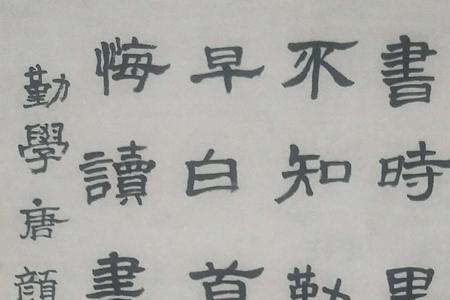 書時黑
不知勤
早白首
悔讀書
勤學唐顏